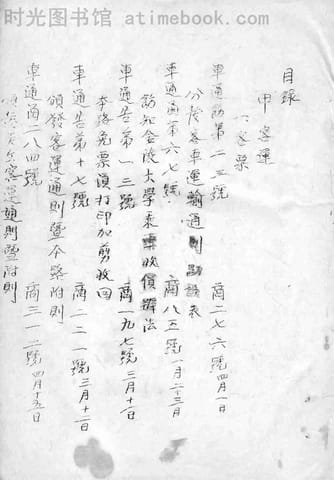 时光图书馆 atimebook.com
目錄
甲 客運
一 客票
車通 第二三號 商二七六號 四月一日
分 客車運輸通則 表
車通函第六七號 商八五號 一月二十三月
金陵大學乘車收價辦法
車通告第一三號 商一九七號 三月十一日
本路免票須打印加剪收回
車通告第十七號 商二二一號 三月十二日
頒發客運通則暨本路附則
車通函二八四號 商三一二號 四月十五日
客運通則暨附則